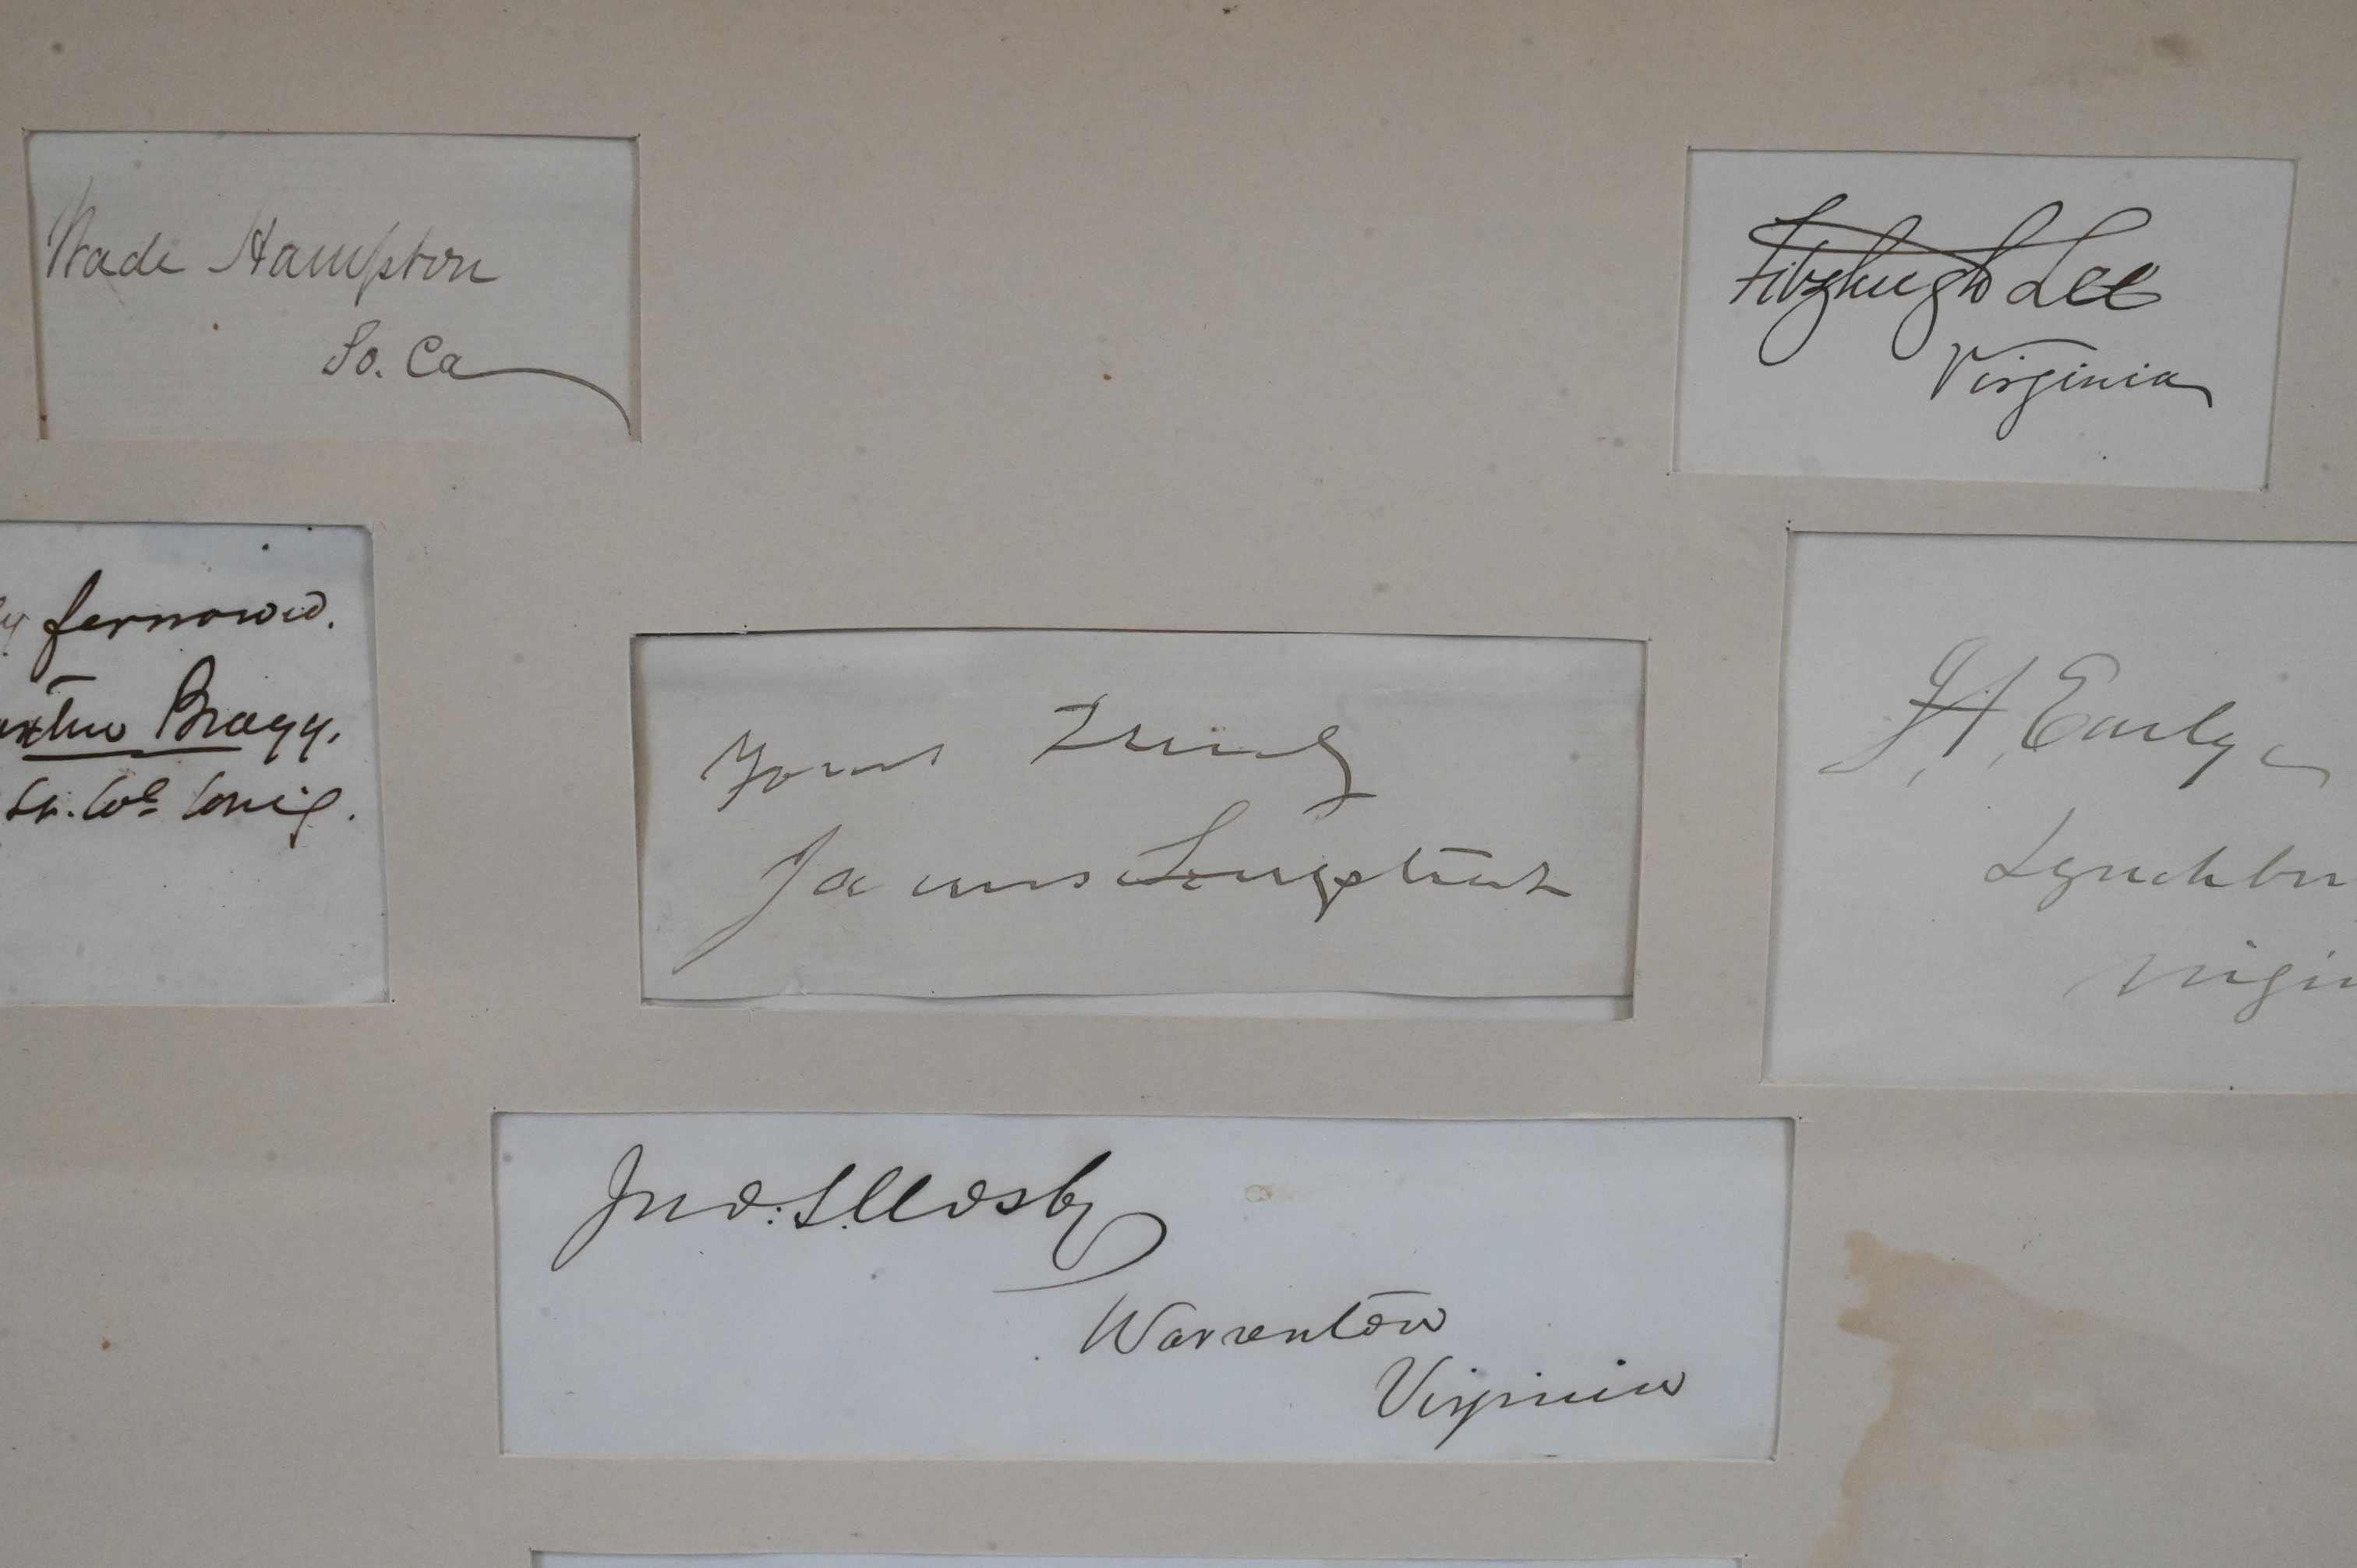 Wade Hampton
So. Ca
Fitzhugh Lee
Virginia
Bragg.
Yours Truly
James Longstreet
J. A. Early
Lynchbu
Virgin
Jno: S. Mosby
Warrenton
Virginia